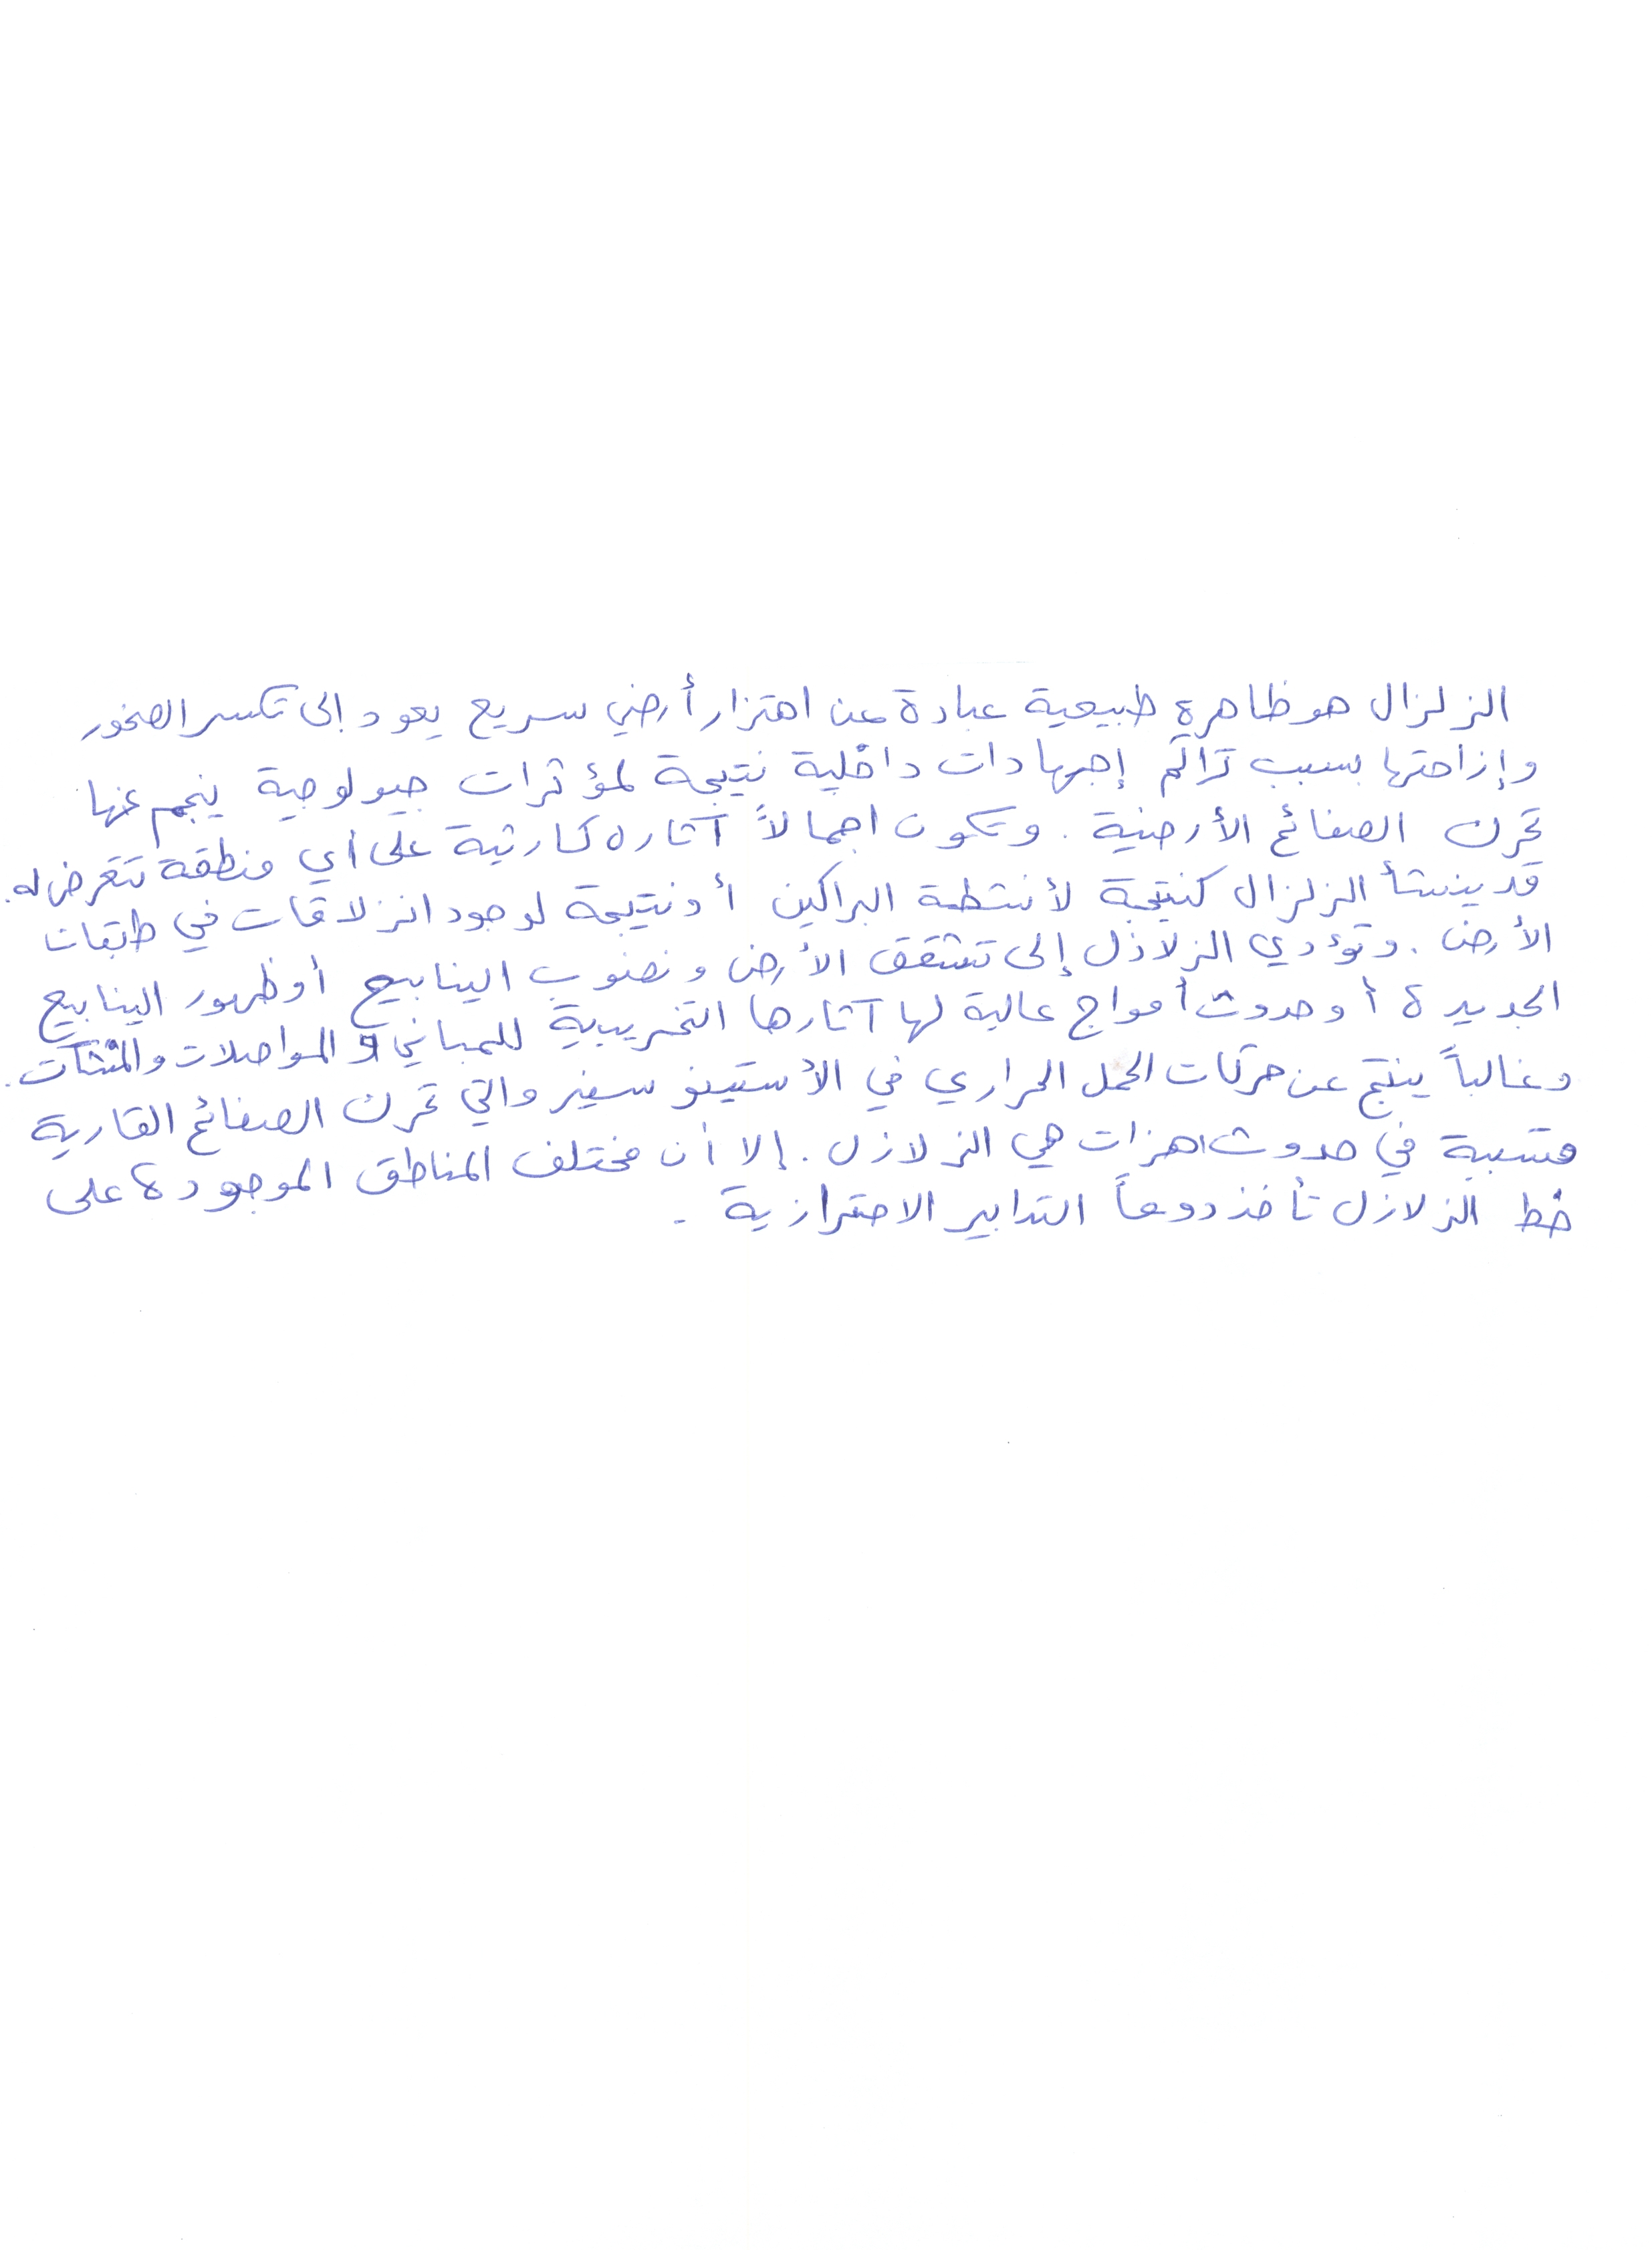 الزلزال هو ظاهرة طبيعية عبارة عن اهتزاز أرضي سريع يعود إلى تكسر الصخور
وإزاحتها بسبب تراكم إجهادات داخلية نتيجة لمؤثرات جيولوجية ينجم عنها
تحرك الصفائح الأرضية. وتكون اجمالاً آثاره كارثية على أي منطقة تتعرض له.
قد ينشأ الزلزال كنتيجة لأنشطة البراكين أو نتيجة لوجود انزلاقات في طبقات
الأرض. وتؤدي الزلازل إلى تشقق الأرض ونضوب الينابيع أو ظهور الينابيع
الجديدة أو حدوث أمواج عالية لها آثارها التخريبية للمباني والمواصلات والمنشآت.
وغالباً ينتج عن حركات الحمل الحراري في الأستينوسفير والتي تحرك الصفائح القارية
متسببة في حدوث اهزات هي الزلازل. إلا أن مختلف المناطق الموجودة على
خط الزلازل تأخذ دوماً التدابير الاحترازية.